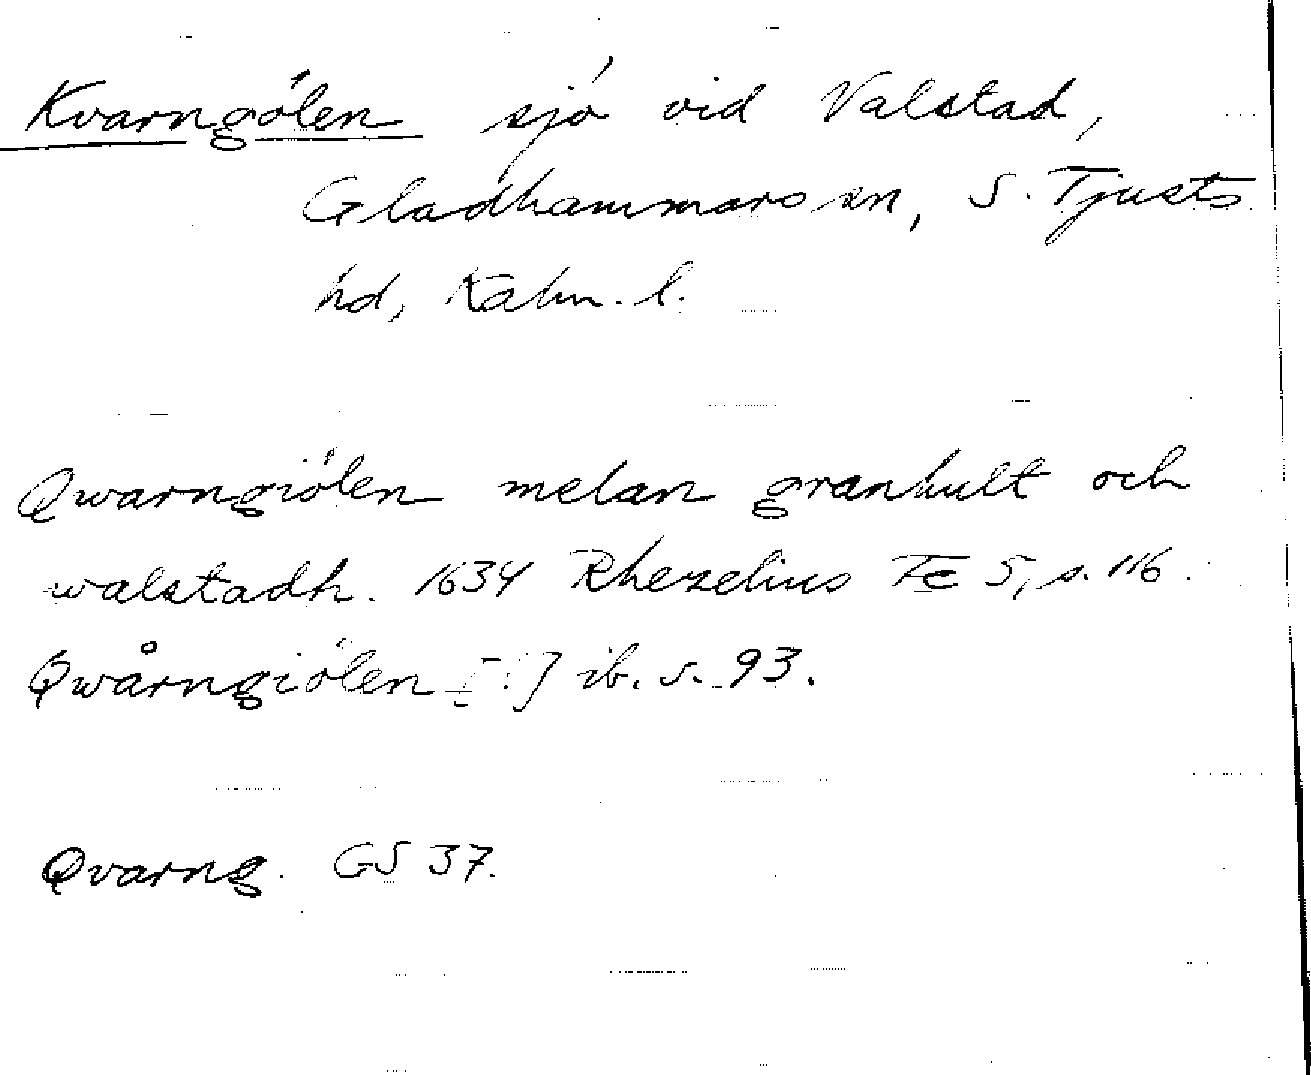 Kvarngölen sjö vid Valstad,
Gladhammars sn, S. Tjusts
hd, Kalm. l.
Qwarngiölen melan granhult och
walstadh. 1634 Rhezelius Fc 5, s. 116.
Qwårngiölen [!] ib. s. 93.
Qvarng. GS 37.